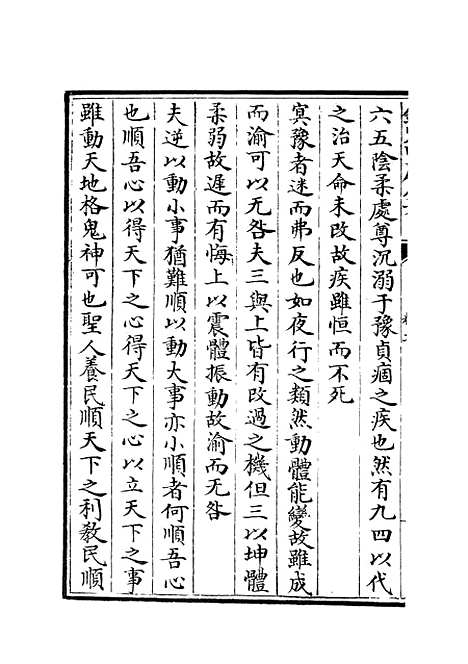 六五陰柔處尊沉溺于豫貞痼之疾也然有九四以代
之治天命未改故疾雖恒而不死
冥豫者迷而弗反也如夜行之類然動體能變故雖成
而渝可以无咎夫三與上皆有改過之機但三以坤體
柔弱故遲而有悔上以震體振動故渝而无咎
夫逆以動小事猶難順以動大事亦小順者何順吾心
也順吾心以得天下之心得天下之心以立天下之事
雖動天地格鬼神可也聖人養民順天下之利教民順